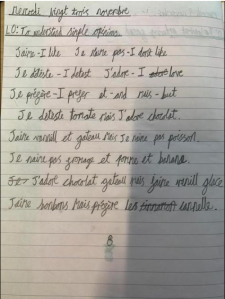 Mercredi vingt trois novembre
LO: To understand simple opinions
J'aime - I like Je n'aime pas - I don't like
Je déteste - I detest J'adore - I love
Je préfère - I prefer et - and mais - but
Je déteste tomate mais J'adore chocolat.
J'aime vanill et gateau mais Je n'aime pas poisson.
Je n'aime pas fromage et pomme et banane.
J'adore chocolat gateau mais j'aime vanill glace
J'aime bonbons mais préfère les cannelle.